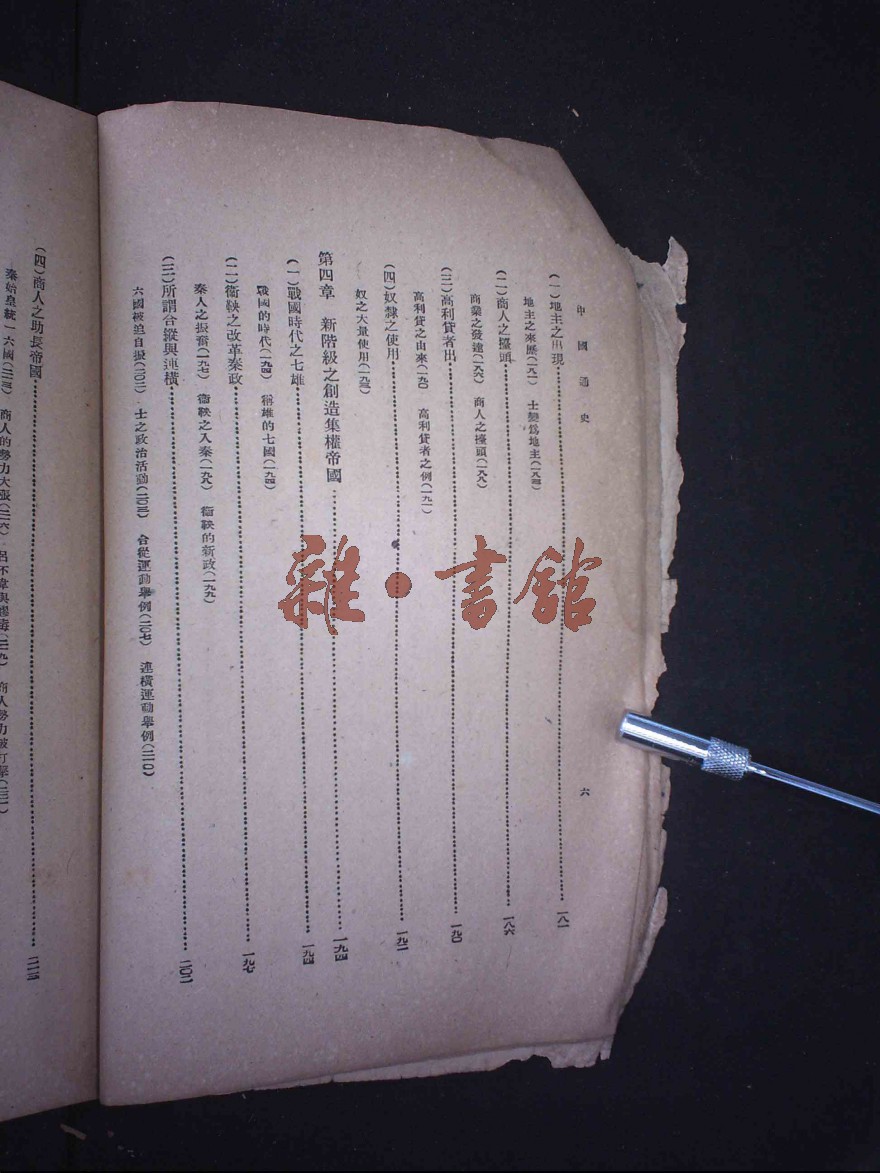 中國通史
六
(一)地主之出現……一八一
地主之來歷(一八一) 士變爲地主(一八四)
(二)商人之擡頭……一八六
商業之發達(一八六) 商人之擡頭(一八八)
(三)高利貸者出……一九〇
高利貸之由來(一九〇) 高利貸者之例(一九一)
(四)奴隸之使用……一九二
奴之大量使用(一九二)
第四章 新階級之創造集權帝國……一九四
(一)戰國時代之七雄……一九四
戰國的時代(一九四) 稱雄的七國(一九四)
(二)衞鞅之改革秦政……一九七
秦人之振奮(一九七) 衞鞅之入秦(一九八) 衞鞅的新政(一九九)
(三)所謂合縱與連橫……二〇二
六國被迫自振(二〇二) 士之政治活動(二〇三) 合從運動舉例(二〇七) 連橫運動舉例(二一〇)
(四)商人之助長帝國……二一三
秦始皇統一六國(二一三) 商人的勢力大張(二一六) 呂不韋與嫪毐(二一九) 商人勢力被打擊(二二一)
雜·書館